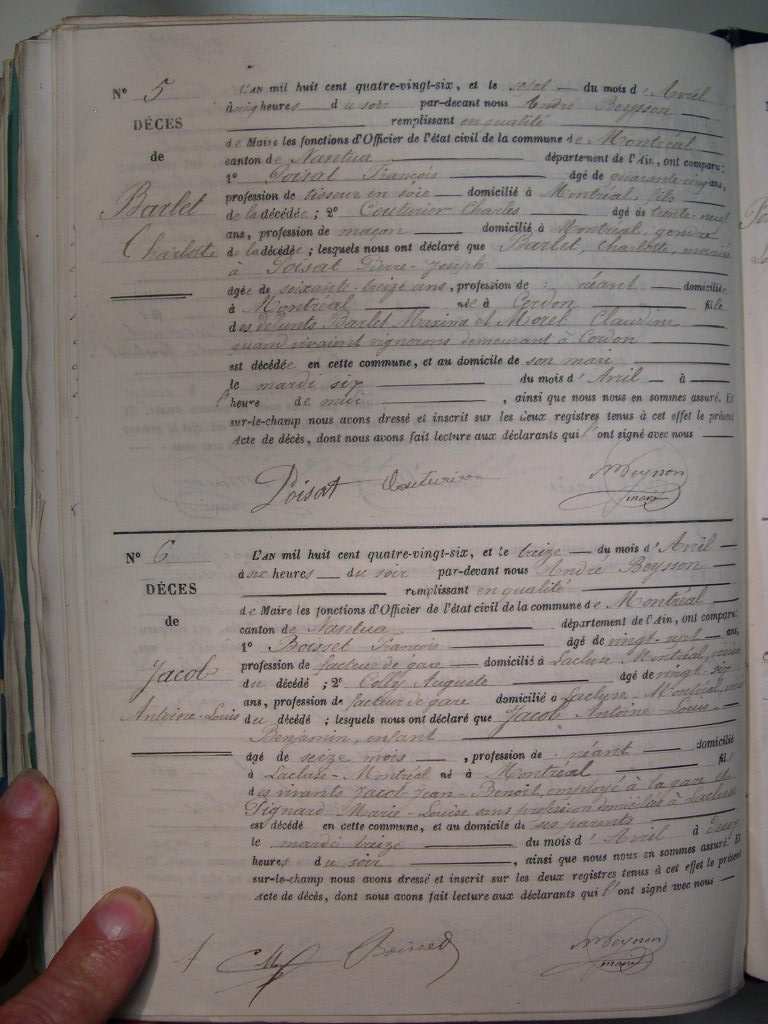 N° 5
DÉCES
de
Barlet
Charlotte
L'AN mil huit cent quatre-vingt-six, et le sept du mois d'Avril
à heures du soir par-devant nous André Beysson
remplissant en qualité
de Maire les fonctions d'Officier de l'état civil de la commune de Montréal
canton de Nantua département de l'Ain, ont comparu:
1° Poisat François âgé de quarante cinq ans,
profession de tisseur en soie domicilié à Montréal, fils
de la décédée; 2° Couturier Charles âgé de trente-neuf
ans, profession de maçon domicilié à Montréal, gendre
de la décédée; lesquels nous ont déclaré que Barlet, Charlotte, mariée
à Poisat Pierre-Joseph
âgée de soixante-treize ans, profession de néant domiciliée
à Montréal née à Cordon fille
des défunts Barlet Maxime et Morel Claudine
quand vivaient vignerons demeurant à Cordon
est décédée en cette commune, et au domicile de son mari
le mardi six du mois d'Avril à
heure de midi, ainsi que nous nous en sommes assuré. Et
sur-le-champ nous avons dressé et inscrit sur les deux registres tenus à cet effet le présent
Acte de décès, dont nous avons fait lecture aux déclarants qui l'ont signé avec nous
Poisat Couturier
maire
N° 6
DÉCES
de
Jacob
Antoine-Louis
L'AN mil huit cent quatre-vingt-six, et le treize du mois d'Avril
à six heures du soir par-devant nous André Beysson
remplissant en qualité
de Maire les fonctions d'Officier de l'état civil de la commune de Montréal
canton de Nantua département de l'Ain, ont comparu:
1° Boisset François âgé de vingt-neuf ans,
profession de facteur de gare domicilié à Lacluse Montréal, voisin
du décédé; 2° Colly Auguste âgé de vingt-six
ans, profession de facteur de gare domicilié à Lacluse-Montréal,
du décédé; lesquels nous ont déclaré que Jacob Antoine-Louis-
Benjamin, enfant
âgé de seize mois, profession de néant domicilié
à Lacluse-Montréal né à Montréal fils
des vivants Jacob Jean-Benoit, employé à la gare et
Pignard Marie-Louise sans profession domiciliés à Lacluse
est décédé en cette commune, et au domicile de ses parents
le mardi treize du mois d'Avril à deux
heures du soir, ainsi que nous nous en sommes assuré. Et
sur-le-champ nous avons dressé et inscrit sur les deux registres tenus à cet effet le présent
Acte de décès, dont nous avons fait lecture aux déclarants qui l'ont signé avec nous
Boisset
maire